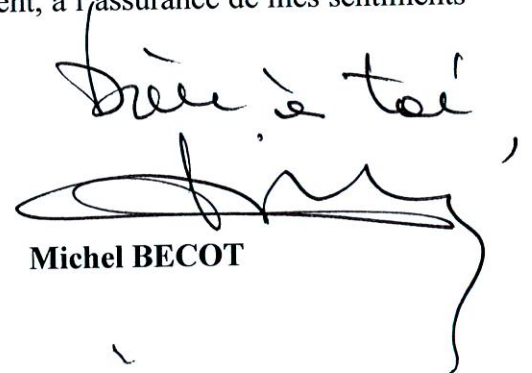 ent, à l'assurance de mes sentiments
bien à toi,
Michel BECOT